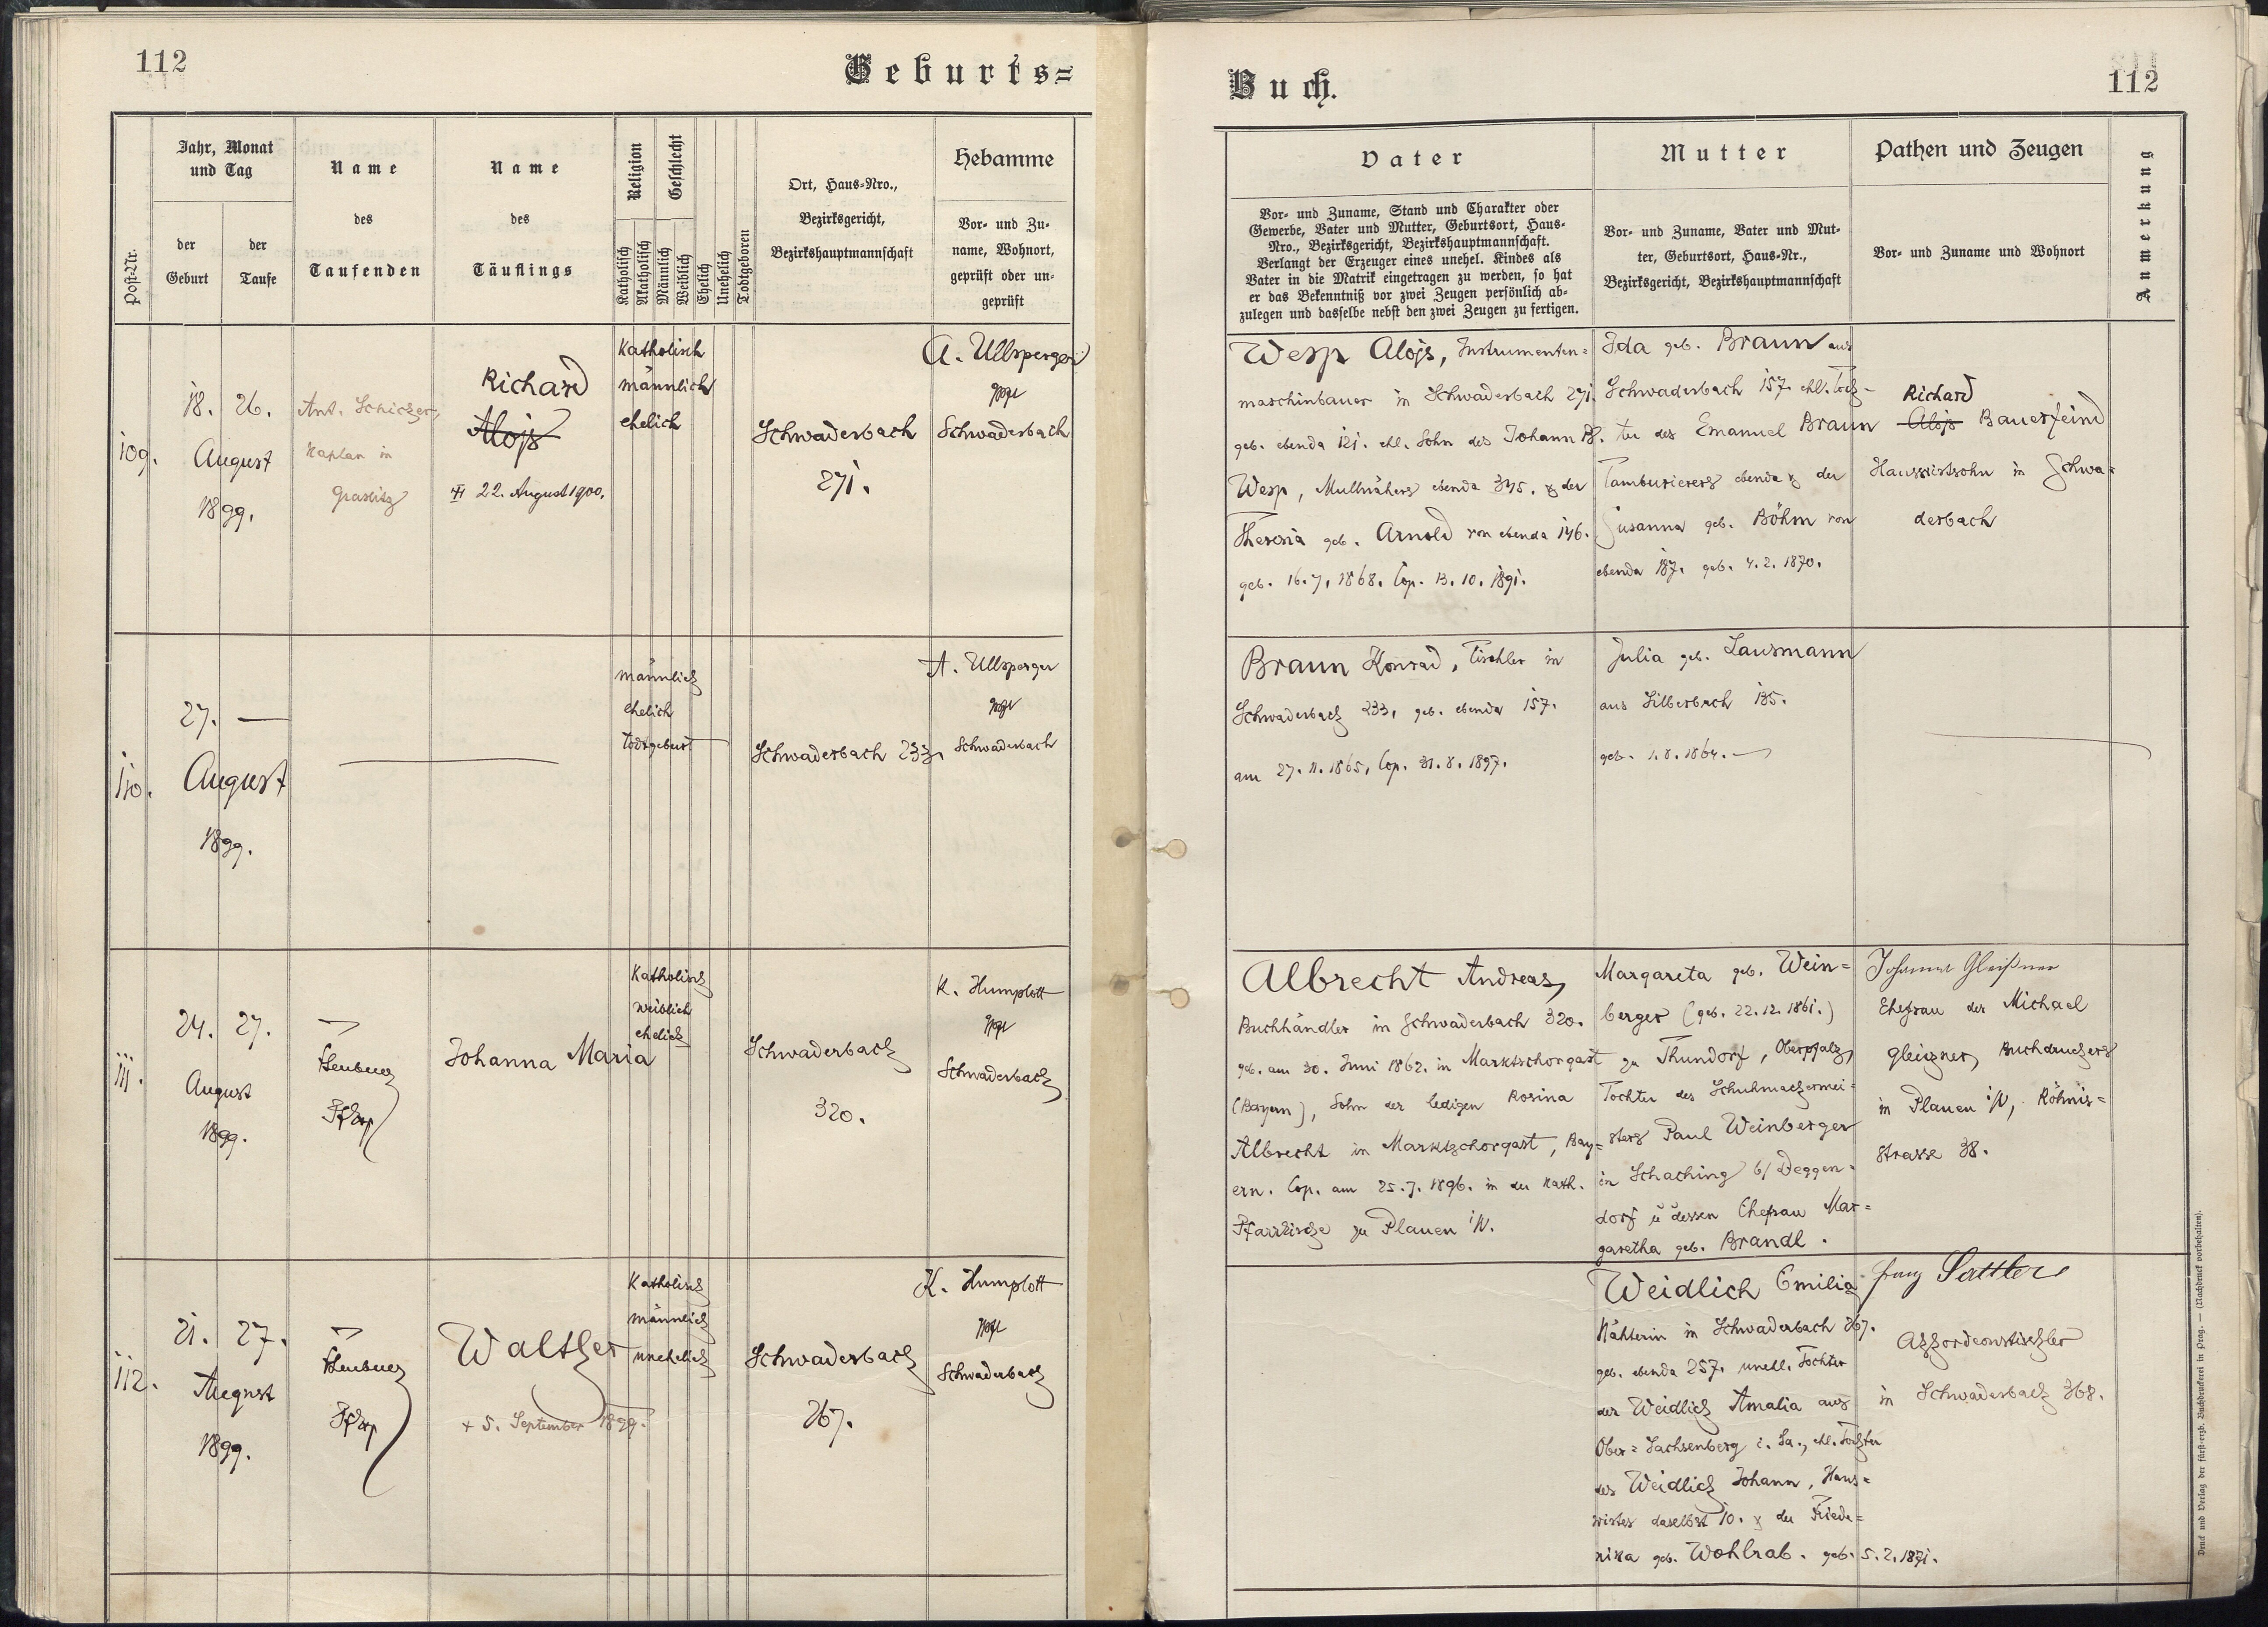 112
Geburts=
Post-Nr.
Jahr, Monat
und Tag
der
Geburt
der
Taufe
Name
des
Taufenden
Name
des
Täuflings
Religion
Geschlecht
Katholisch
Akatholisch
Männlich
Weiblich
Ehelich
Unehelich
Todtgeboren
Ort, Haus-Nro.,
Bezirksgericht,
Bezirkshauptmannschaft
Hebamme
Vor- und Zu-
name, Wohnort,
geprüft oder un-
geprüft
109.
18. 26.
August
1899.
Ant. Schicker,
Kaplan in
Graslitz
Richard
Alojs
22. August 1900.
Katholisch
männlich
ehelich
Schwaderbach
271.
A. Ullsperger
Schwaderbach
110.
27. —
August
1899.
männlich
ehelich
Todtgeburt
Schwaderbach 233.
A. Ullsperger
Schwaderbach
111.
24. 27.
August
1899.
Johanna Maria
Katholisch
weiblich
ehelich
Schwaderbach
320.
K. Humplott
Schwaderbach
112.
21. 27.
August
1899.
Walther
+ 5. September 1899.
Katholisch
männlich
unehelich
Schwaderbach
267.
K. Humplott
Schwaderbach
Buch.
112
Vater
Vor- und Zuname, Stand und Charakter oder
Gewerbe, Vater und Mutter, Geburtsort, Haus-
Nro., Bezirksgericht, Bezirkshauptmannschaft.
Verlangt der Erzeuger eines unehel. Kindes als
Vater in die Matrik eingetragen zu werden, so hat
er das Bekenntniß vor zwei Zeugen persönlich ab-
zulegen und dasselbe nebst den zwei Zeugen zu fertigen.
Mutter
Vor- und Zuname, Vater und Mut-
ter, Geburtsort, Haus-Nr.,
Bezirksgericht, Bezirkshauptmannschaft
Pathen und Zeugen
Vor- und Zuname und Wohnort
Anmerkung
Wesp Alojs, Instrumenten=
maschinbauer in Schwaderbach 271.
geb. ebenda 121. ehl. Sohn des Johann
Wesp, Mullnähers ebenda 345. & der
Theresia geb. Arnold von ebenda 146.
geb. 16. 7. 1868. Cop. 13. 10. 1891.
Ida geb. Braun aus
Schwaderbach 157. ehl. Toch=
ter des Emanuel Braun
Tamburierers ebenda & der
Susanna geb. Böhm von
ebenda 187. geb. 4. 2. 1870.
Richard
Alojs Bauerfeind
Haussistsohn in Schwa=
derbach
Braun Konrad, Tischler in
Schwaderbach 233, geb. ebenda 157.
am 27. 11. 1865, Cop. 31. 8. 1897.
Julia geb. Lausmann
aus Silberbach 135.
geb. 1. 8. 1864.
Albrecht Andreas,
Buchhändler in Schwaderbach 320.
geb. am 30. Juni 1862. in Marktschorgast
(Bayern), Sohn der ledigen Rosina
Albrecht in Marktschorgast, Bay=
ern. Cop. am 25. 7. 1896. in der kath.
Pfarrkirche zu Plauen i/V.
Margareta geb. Wein=
berger (geb. 22. 12. 1861.)
zu Thundorf, Oberpfalz,
Tochter des Schuhmachermei=
sters Paul Weinberger
in Schaching b/ Deggen=
dorf u dessen Ehefrau Mar=
garetha geb. Brandl.
Johanna Gleißner
Ehefrau des Michael
Gleizner, Buchdruckers
in Plauen i/V,
strasse 38.
Weidlich Emilia
Nähterin in Schwaderbach 267.
geb. ebenda 257. unehl. Tochter
der Weidlich Amalia aus
Ober=Sachsenberg i. Sa., ehl. Tochter
des Weidlich Johann, Haus=
sistes daselbst 10. & der Friede=
rika geb. Wohlrab. geb. 5. 2. 1871.
Franz Sattler
Akkordeontischler
in Schwaderbach 368.
Druck und Verlag der fürst-erzb. Buchdruckerei in Prag. — (Nachdruck vorbehalten).